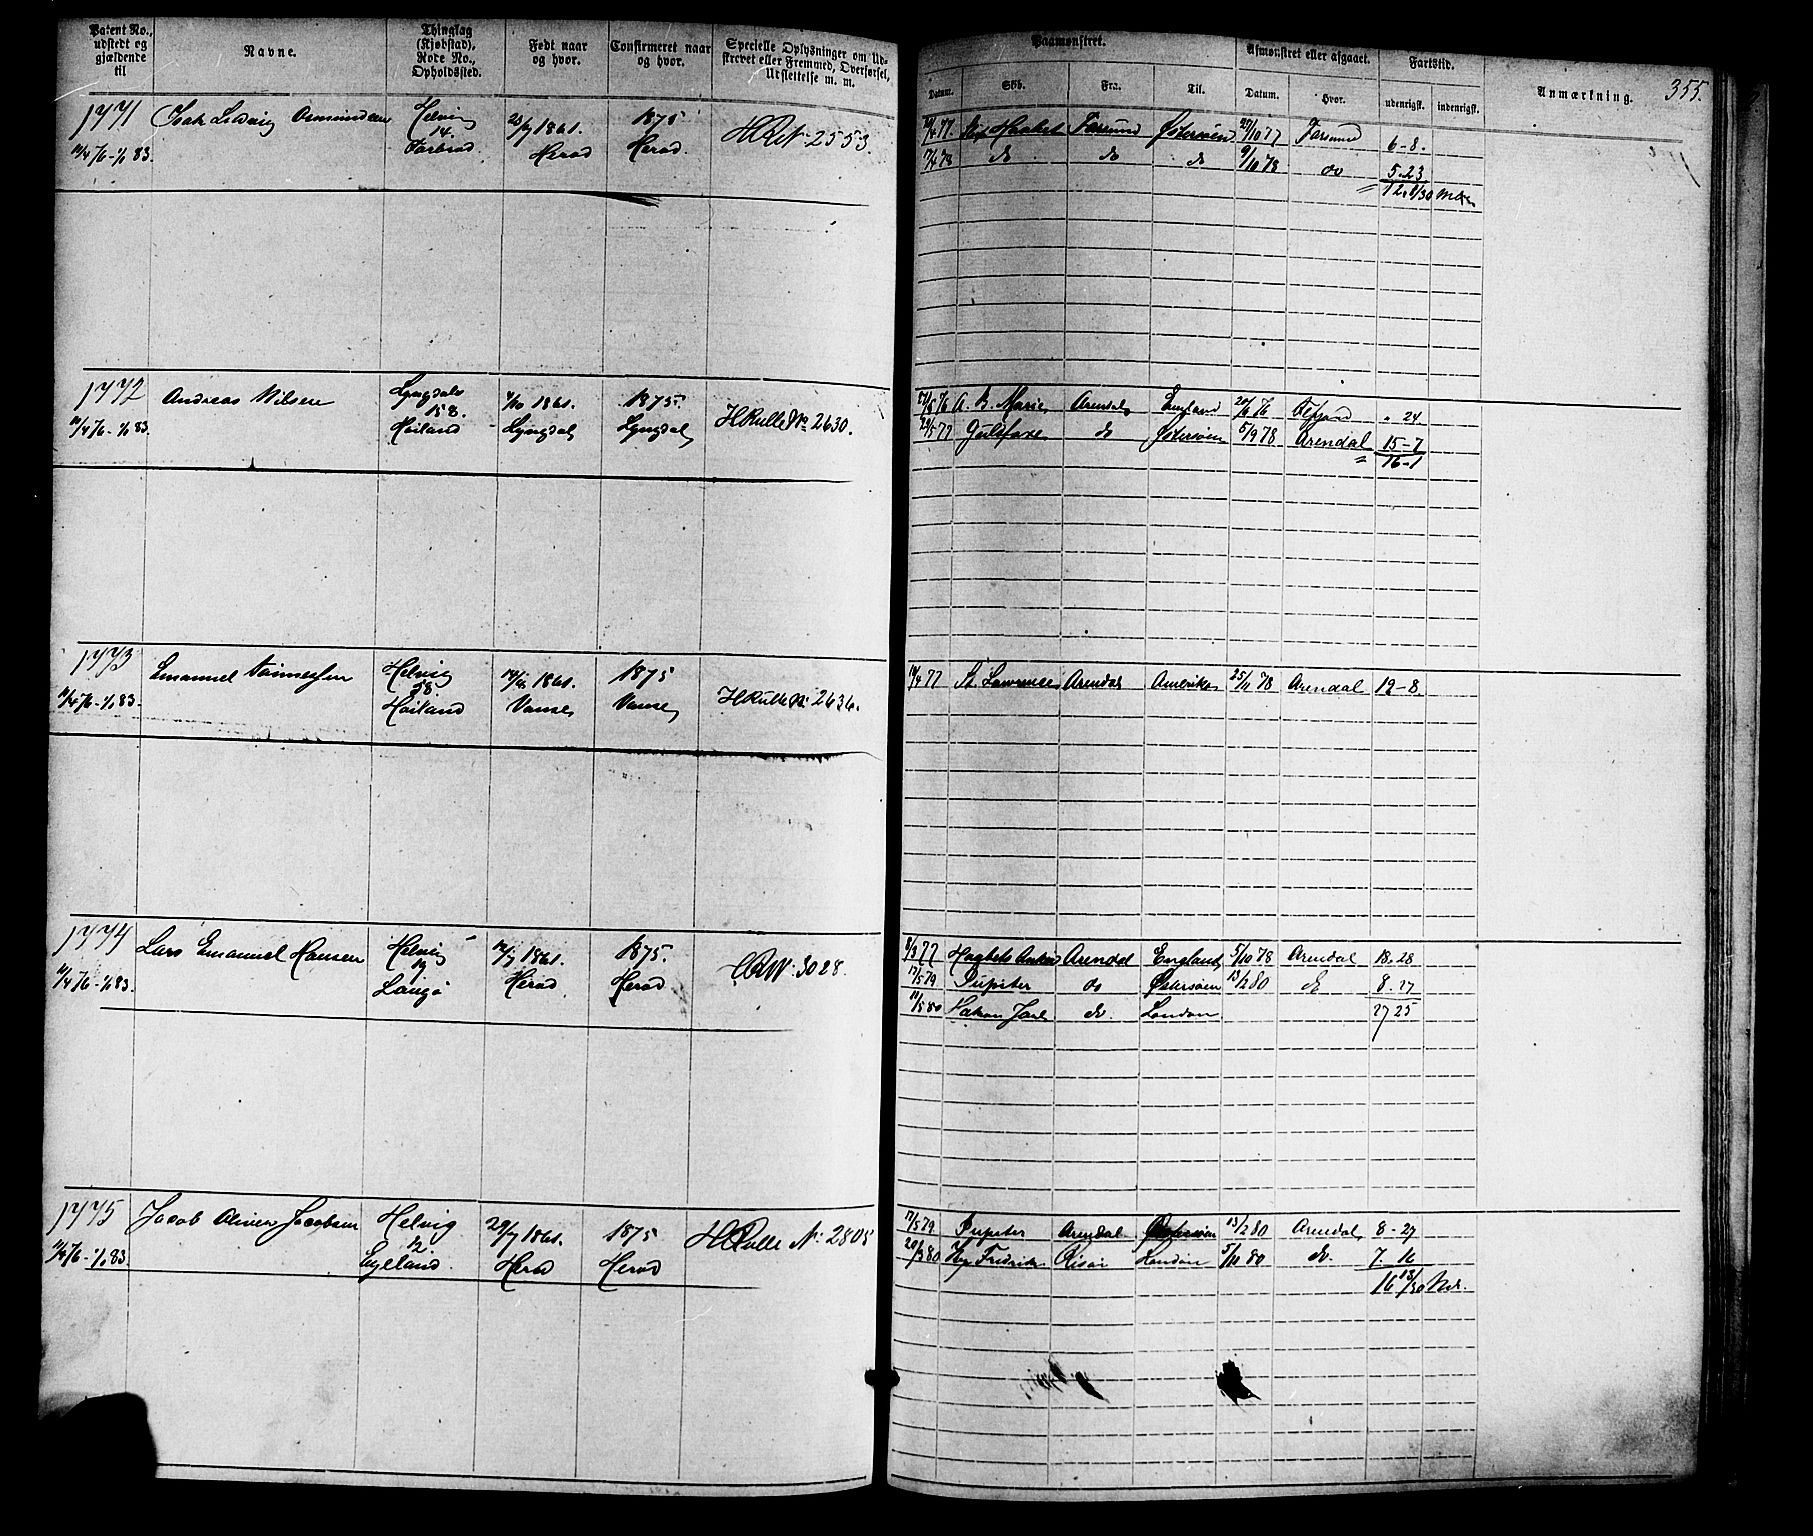 Patent No., udstedt og gjældende til
Navne.
Thinglag (Kjøbstad), Rode No., Opholdssted.
Født naar og hvor.
Confirmeret naar og hvor.
Specielle Oplysninger om Udskrevet eller Fremmed, Overførsel, Udslettelse m. m.
Paamønstret.
Afmønstret eller afgaaet.
Fartstid.
Anmærkning.
355.
Datum. Skib. Fra. Til. Datum. Hvor. udenrigsk. indenrigsk.
1771 Isak Ludvig
Helvig 14. 23/7 1861. Herad 1875 Herad.
11/4 76 - 1/1 83
H R N 2553.
77 Haabet Farsund Østersøen 27/10 77 Farsund 6-8.
17/4 78 do do do 9/10 78 do 5.23
12 1/30 Mdr
1772 Andreas Nilsen
Lyngdal 158. Høiland
1861. Lyngdal
1875. Lyngdal
11/4 76 - 1/1 83.
H Rulle No 2630.
76 A. B. Marie Arendal England 20/6 76 24.
29/5 77 Gulfaxe do Østersøen 5/9 78 Arendal 15-7
16-1
1773 Emanuel Tønnessen
Helvig 58 Høiland
1861. Vanse
1875 Vanse
11/4 76 - 1/1 83.
H Rulle No 2636.
19/4 77 St. Lawrence Arendal Amerika 25/11 78 Arendal 12-8
1774 Lars Emanuel Hansen
Helvig 19 Langø
12/7 1861. Herad
1875. Herad
11/4 76 - 1/1 83.
3028.
8/3 77 Haabets Anker Arendal England 5/10 78 Arendal 18.28
17/5 79 Jupiter do Østersøen 13/2 80 do 8.27
11/5 80 Hakon Jarl do London
27 25
1775 Jacob Oliver Jacobsen
Helvig 12. Eyeland
29/7 1861. Herad
1875 Herad
11/4 76 - 1/1 83.
H Rulle No 2805
17/5 79 Jupiter Arendal Østersøen 13/2 80 Arendal 8-27
20/3 80 Fredrik Risør London 5/11 80 do. 7. 16
16 13/30 Mdr.